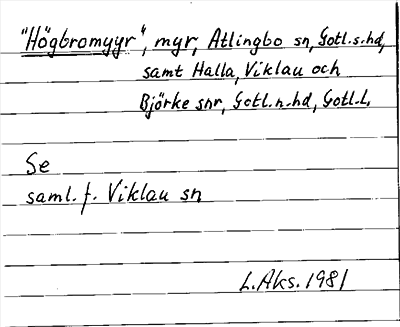 "Högbromyyr", myr, Atlingbo sn, Gotl.s.hd,
samt Halla, Viklau och
Björke snr, Gotl.n.hd, Gotl.L.
Se
saml. f. Viklau sn
L.Aks. 1981